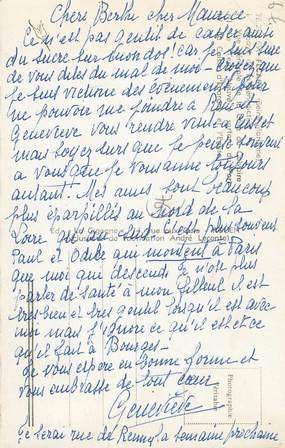 Chère Berthe cher Maurice
Ce n'est pas gentil de casser ainsi
du sucre sur mon dos! car je suis sûre
de vous dites du mal de moi - croyez que
je suis victime des événements pour
ne pouvoir me joindre à René et
Geneviève vous rendre visite à Cusset
mais soyez sûrs que je pense souvent
à vous que je vous aime toujours
autant. Mes amis sont beaucoup
plus éparpillés au Nord de la
Loire qu'au Sud - et plus souvent
Paul et Odile qui montent à Paris
que moi qui descends. Je n'ose plus
parler de santé à mon filleul il est
très bien et très gentil lorsqu'il est avec
moi mais j'ignore ce qu'il est et ce
qu'il fait à Bourges -
Je vous espère en bonne forme et
vous embrasse de tout cœur
Geneviève
Je serai rue de la semaine prochaine
Fondation André Lecomte
Photographie
véritable